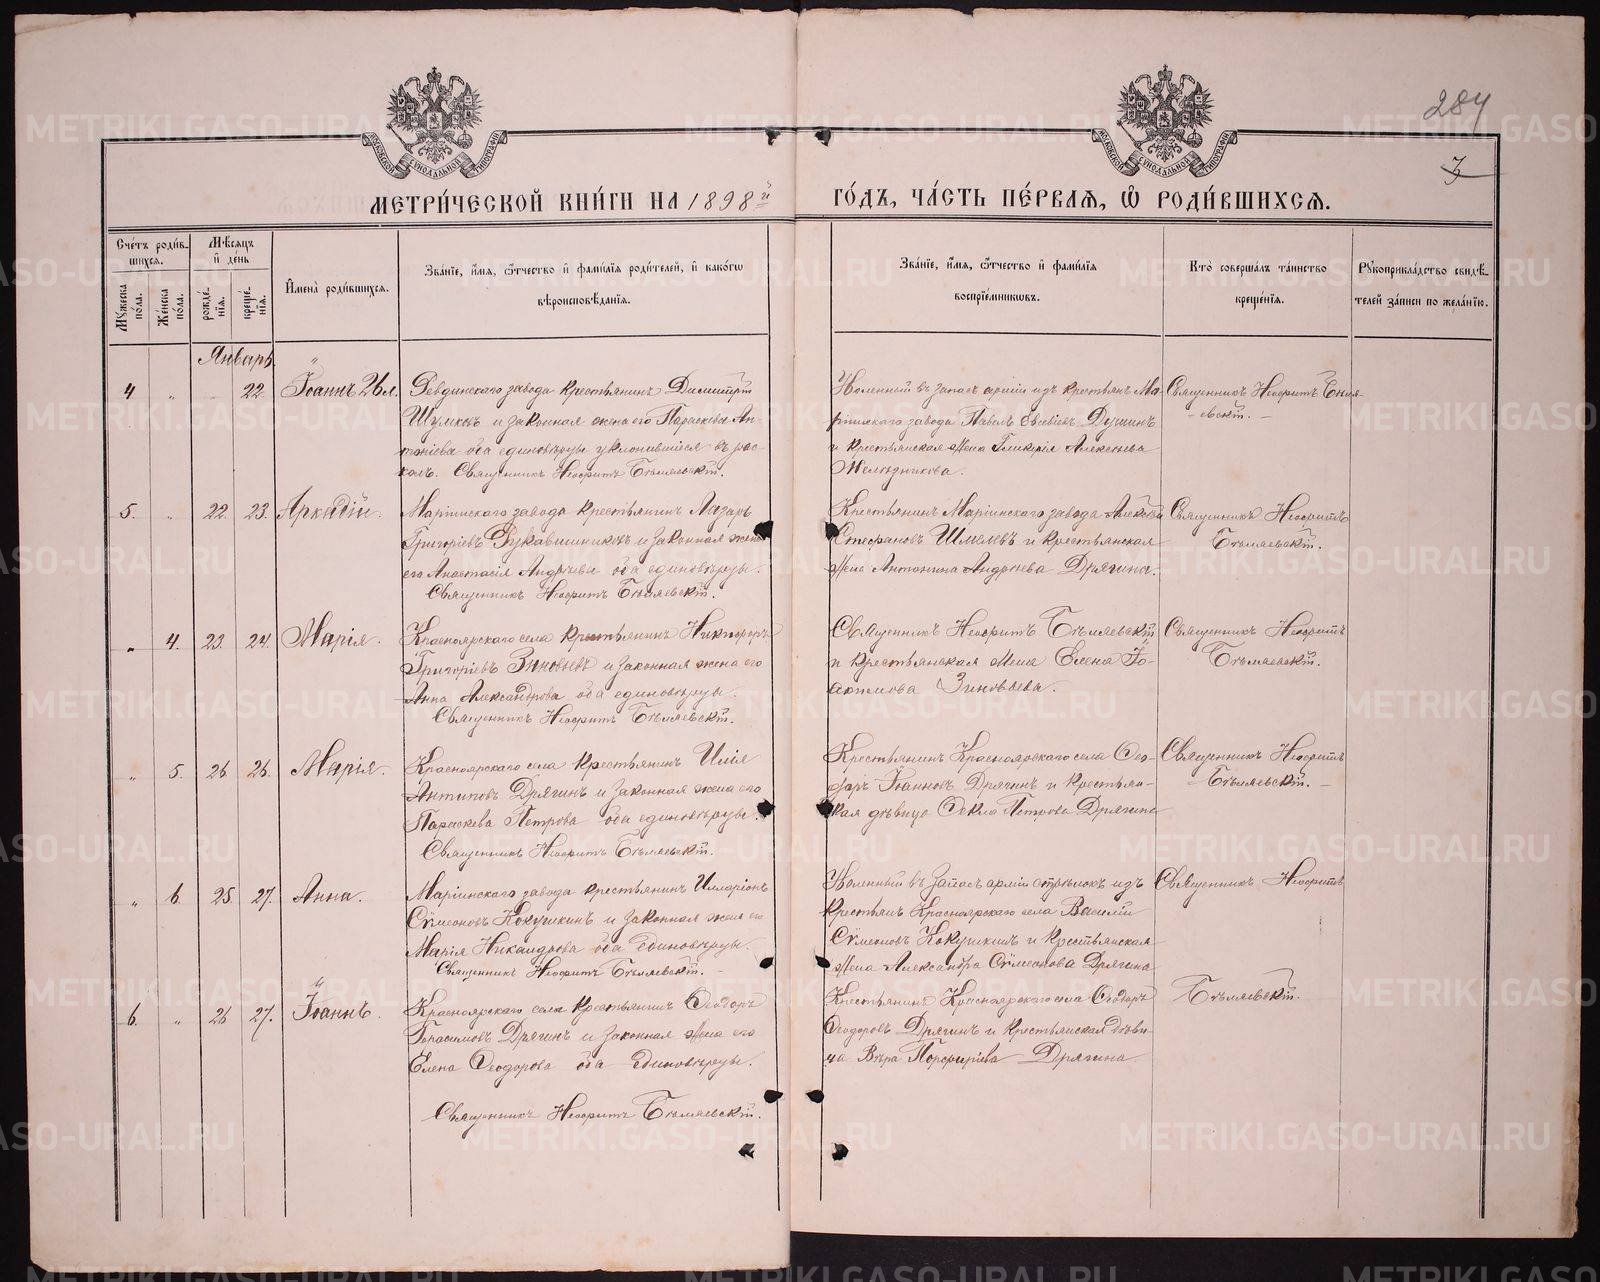 284
3
МОСКОВСКОЙ СѴНОДАЛЬНОЙ ТИПОГРАФІИ
МОСКОВСКОЙ СѴНОДАЛЬНОЙ ТИПОГРАФІИ
МЕТРИ́ЧЕСКОЙ КНИ́ГИ НА 1898й
ГО́ДЪ, ЧА́СТЬ ПЕ́РВАЯ, Ѡ РОДИ́ВШИХСЯ.
Сче́тъ роди́в-
шихся.
Мꙋ́жеска
по́ла.
Же́нска
по́ла.
Мѣ́сяцъ
и҆ де́нь
рожде́-
нїя.
креще́-
нїя.
И҆мена̀ роди́вшихся.
Зва́нїе, и҆́мя, ѻ҆́тчество и҆ фами́лїя роди́телей, и҆ како́гѡ
вѣроисповѣ́данїя.
Зва́нїе, и҆́мя, ѻ҆́тчество и҆ фами́лїя
воспрїе́мникѡвъ.
Кто̀ соверша́лъ та́инство
креще́нїя.
Рꙋкоприкла́дство свидѣ́-
телей за́писи по жела́нїю.
Январь
4 " 22 Іоаннъ
Ревдинскаго завода крестьянинъ Димитрій
Шумковъ и законная жена его Параскева Ан-
тоніева оба единовѣрцы уклонившіеся въ рас-
колъ. Священникъ Неофитъ Бѣляевскій.
Уволенный въ запасъ арміи изъ крестьянъ Ма-
ріинскаго завода Павелъ Евсевіевъ Душинъ
и крестьянская жена Гликерія Алексѣева
Желѣзникова.
Священникъ Неофитъ
5. " 22. 23. Аркадій.
Маріинскаго завода крестьянинъ Лазарь
Григоріевъ Рукавишниковъ и законная жена
его Анастасія Андреева оба единовѣрцы.
Священникъ Неофитъ Бѣляевскій.
Крестьянинъ Маріинскаго завода Алексѣй
Стефановъ Шмелевъ и крестьянская
жена Антонина Андреева Дрягина.
Священникъ Неофитъ
Бѣляевскій.
" 4. 23. 24. Марія.
Красноярскаго села крестьянинъ Никифоръ
Григоріевъ Зиновьевъ и законная жена его
Анна Александрова оба единовѣрцы.
Священникъ Неофитъ Бѣляевскій.
Священникъ Неофитъ Бѣляевскій
и крестьянская жена Елена Іо-
акимова Зиновьева.
Священникъ Неофитъ
Бѣляевскій.
" 5. 26 26. Марія.
Красноярскаго села крестьянинъ Илія
Антиповъ Дрягинъ и законная жена его
Параскева Петрова оба единовѣрцы.
Священникъ Неофитъ Бѣляевскій.
Крестьянинъ Красноярскаго села Ѳео-
доръ Іоанновъ Дрягинъ и крестьян-
ская дѣвица Ѳекла Петрова Дрягина
Священникъ Неофитъ
Бѣляевскій.
" 6 25. 27. Анна.
Маріинскаго завода крестьянинъ Илларіонъ
Сѵмеоновъ Кокушкинъ и законная жена его
Марія Никандрова оба единовѣрцы.
Священникъ Неофитъ Бѣляевскій.
Уволенный въ запасъ арміи стрѣлокъ изъ
крестьянъ Красноярскаго села Василій
Сѵмеоновъ Кокушкинъ и крестьянская
жена Александра Сѵмеонова Дрягина
Священникъ Неофитъ
6. " 26 27. Іоаннъ.
Красноярскаго села крестьянинъ Ѳеодоръ
Герасимовъ Дрягинъ и законная жена его
Елена Ѳеодорова оба единовѣрцы.
Священникъ Неофитъ Бѣляевскій.
Крестьянинъ Красноярскаго села Ѳеодоръ
Ѳеодоровъ Дрягинъ и крестьянская дѣви-
ца Вѣра Порфиріева Дрягина
Бѣляевскій.
METRIKI.GASO-URAL.RU